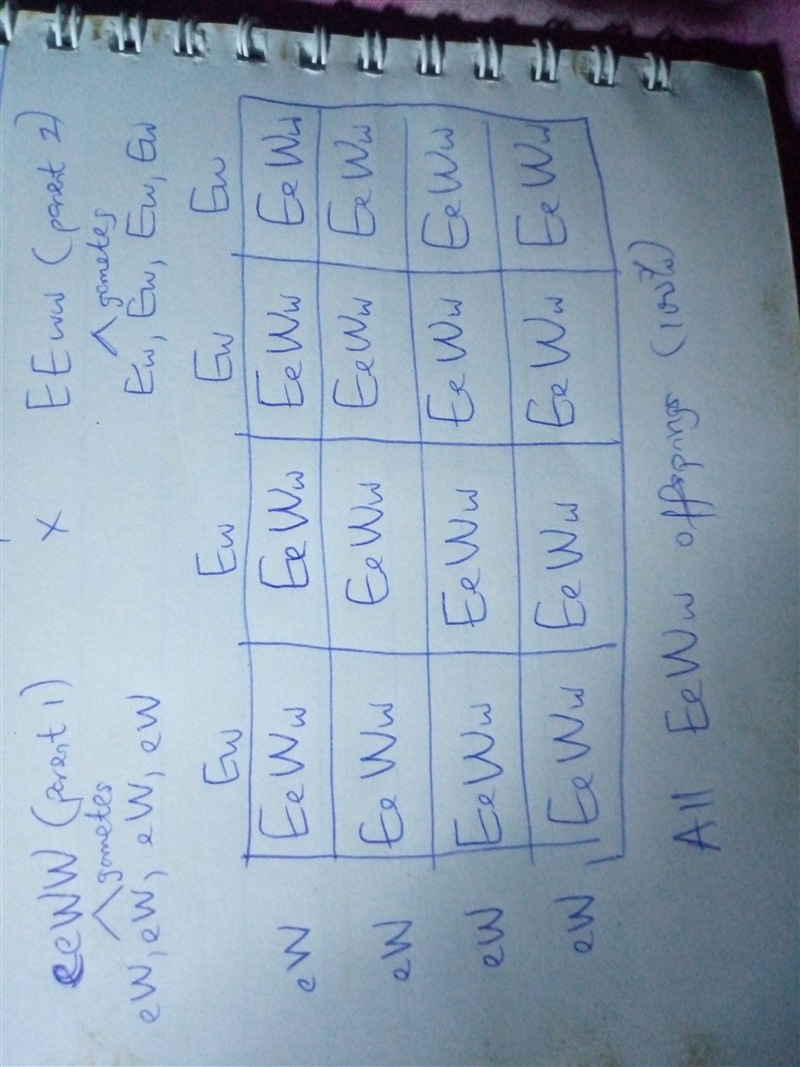 eeWW (parent 1) X EEww (parent 2)
gametes gametes
eW, eW, eW, eW Ew, Ew, Ew, Ew
Ew Ew Ew Ew
eW EeWw EeWw EeWw EeWw
eW EeWw EeWw EeWw EeWw
eW EeWw EeWw EeWw EeWw
eW EeWw EeWw EeWw EeWw
All EeWw offsprings (100%)